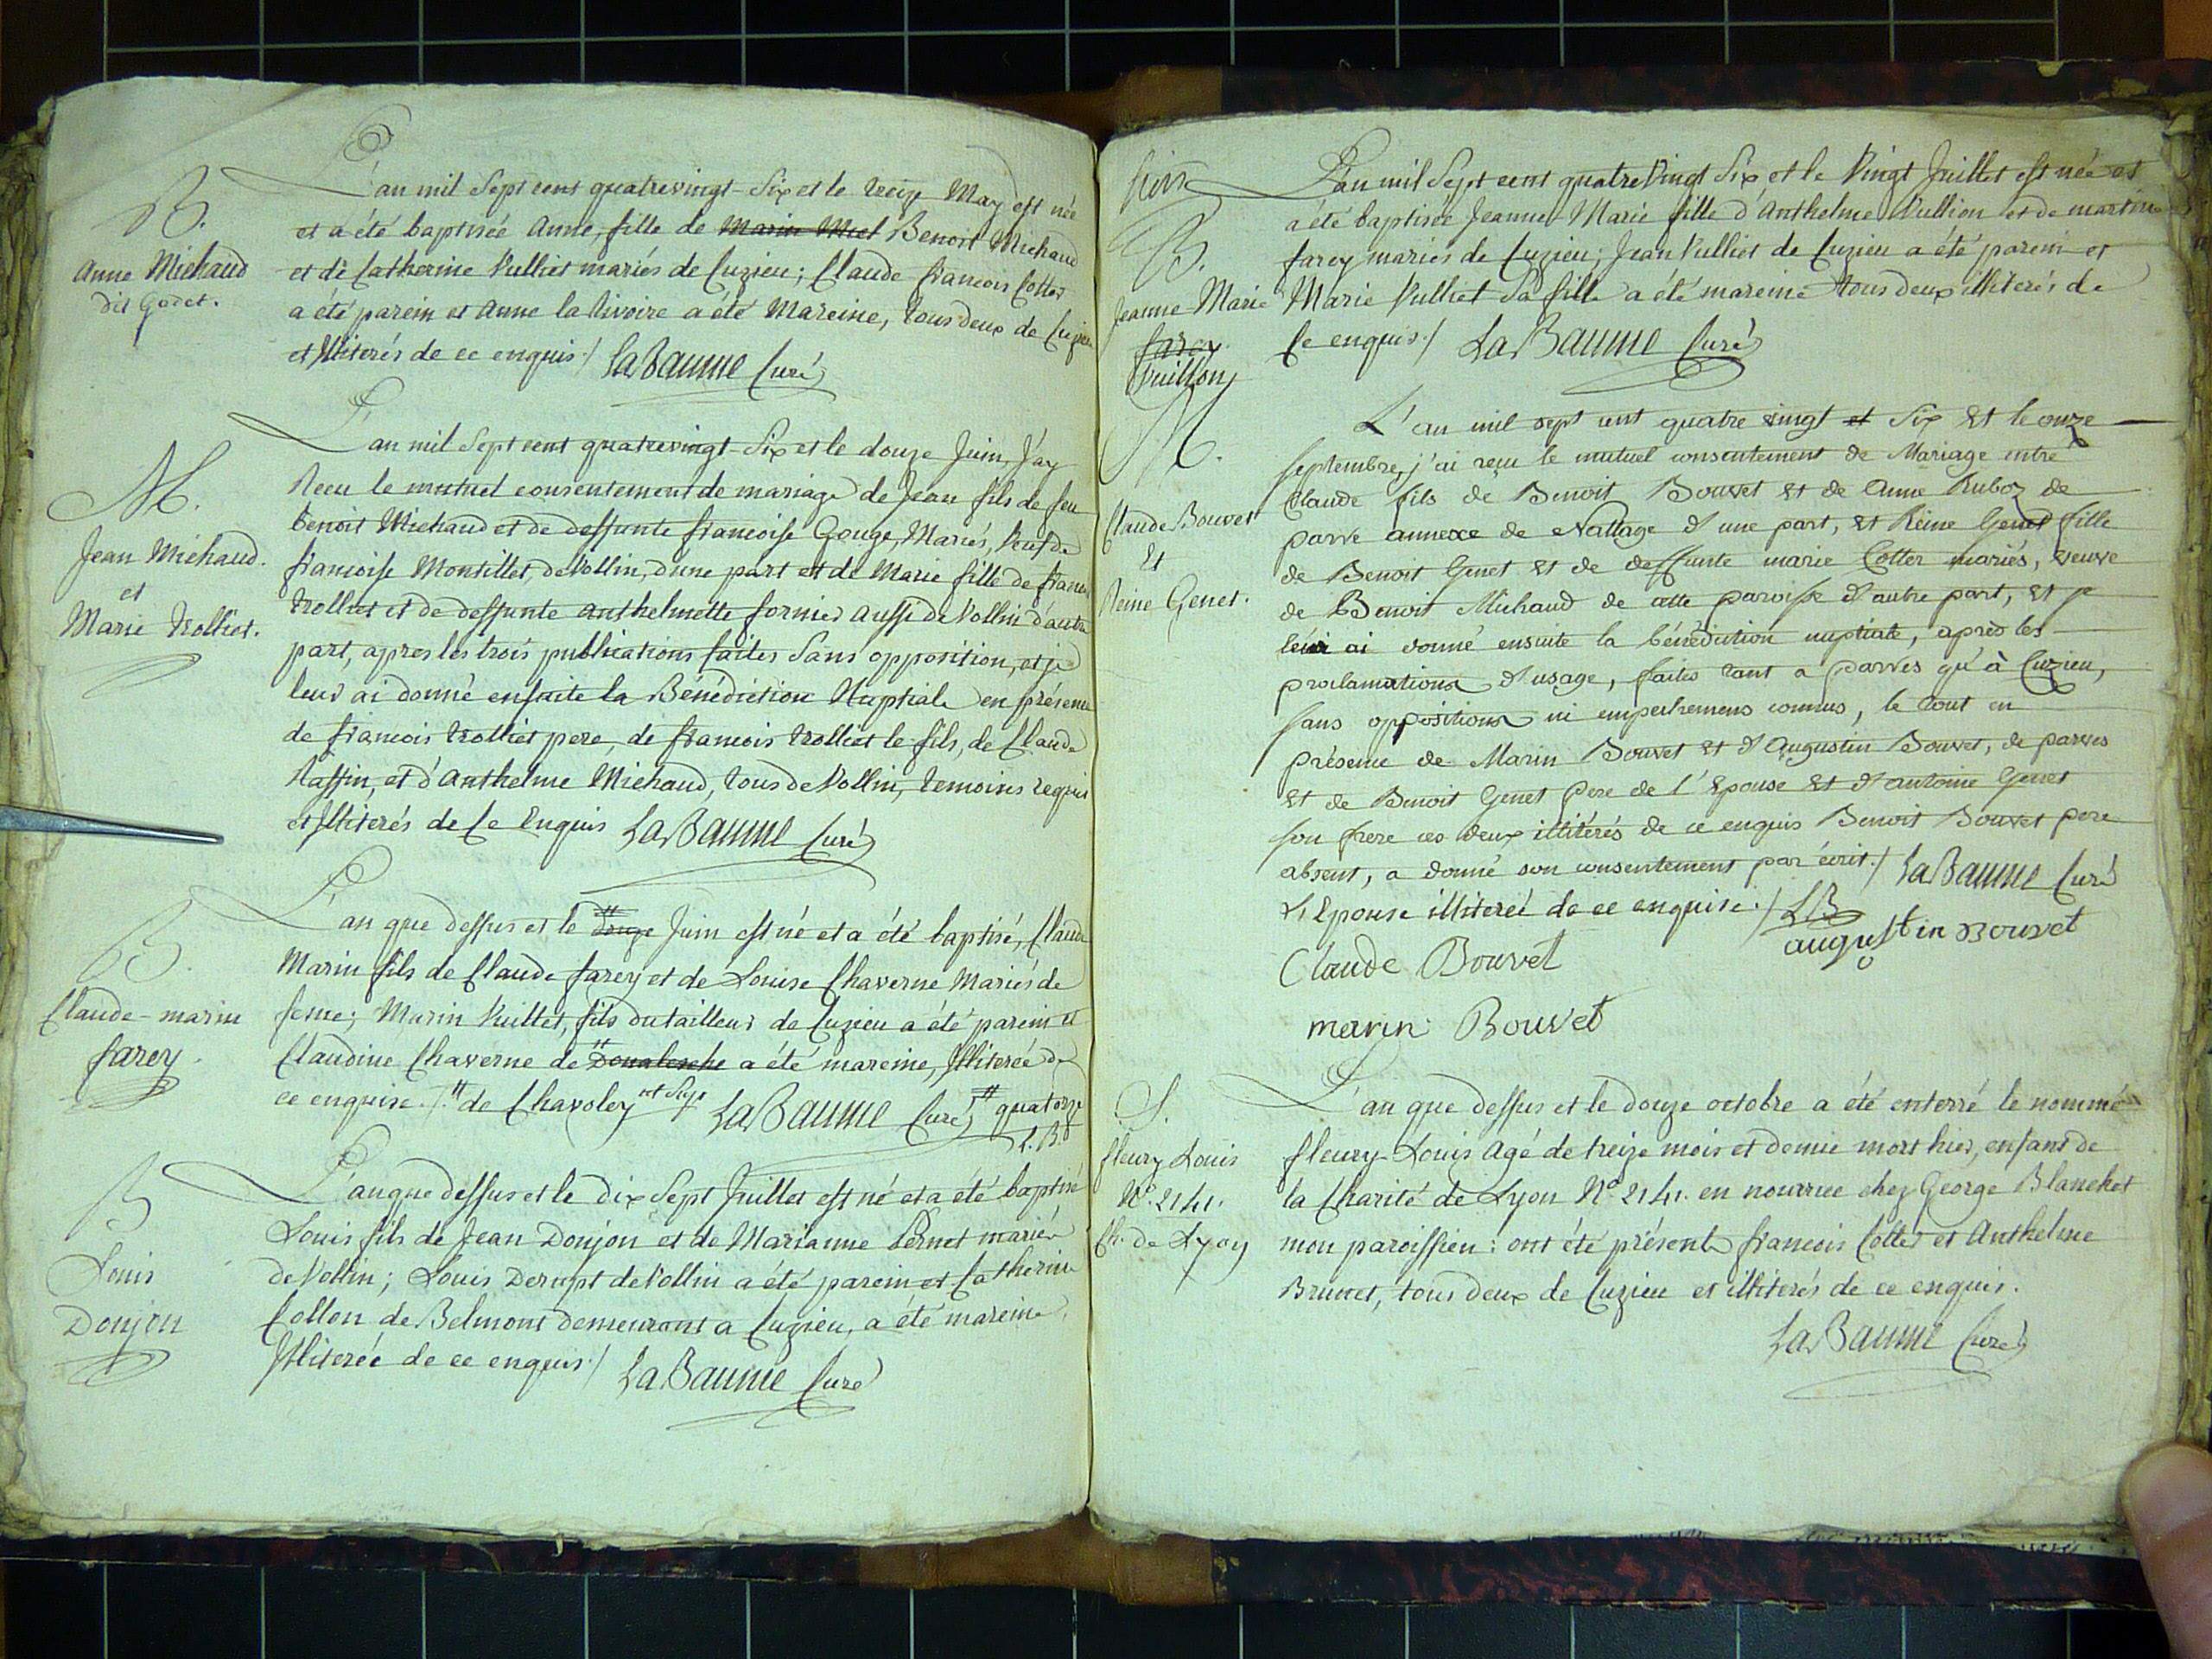 B.
Anne Michaud
dit Godet.
L'an mil sept cent quatrevingt-six et le treize May est née
et a été baptisée Anne, fille de Marin Miel Benoit Michaud
et de Catherine Vulliet mariés de Cuzieu; Claude francois Cottes
a été parein et Anne la Rivoire a été Mareine, tous deux de Cuzieu
et illiterés de ce enquis./ LaBaume Curé
M.
Jean Michaud.
et
Marie Trolliet.
L'an mil sept cent quatrevingt-six et le douze Juin, J'ay
Recu le mutuel consentement de mariage de Jean fils de feu
Benoit Michaud et de deffunte francoise Gouge, Mariés, Veuf de
francoise Montillet, de Vollin, d'une part et de Marie fille de francois
Trolliet et de deffunte Anthelmette fornier aussi de Vollin d'autre
part, apres les trois publications faites sans opposition, et je
leur ai donné ensuite la Bénédiction Nuptiale en présence
de francois Trolliet pere, de francois Trolliet le fils, de Claude
Raffin, et d'Anthelme Michaud, tous de Vollin, temoins requis
et illiterés de Ce Enquis LaBaume Curé
B.
Claude-marin
farcy.
L'an que dessus et le # douze Juin est né et a été baptisé, Claude
Marin fils de Claude farcy et de Louise Chaverne Mariés de
ceme; Marin Vulliet, fils du tailleur de Cuzieu a été parein et
Claudine Chaverne de # a été mareine, Illiterée de
ce enquise./ # de Chavoley LaBaume Curé # quatorze
L.B.
B
Louis
Donjon
L'an que dessus et le dix sept Juillet est né et a été baptisé
Louis fils de Jean Donjon et de Marianne Pernet mariés
de Vollin; Louis Derupt de Vollin a été parein et Catherine
Collon de Belmont demeurant a Cuzieu, a été mareine,
Illiterée de ce enquis./ LaBaume Curé
B.
Jeanne-Marie
farcy
Vullion
L'an mil sept cent quatrevingt six, et le Vingt Juillet est née et
a été baptisée Jeanne-Marie fille d'Anthelme Vullion et de martine
farcy mariés de Cuzieu; Jean Vulliet de Cuzieu a été parein et
Marie Vulliet Sa fille a été mareine tous deux illiterés de
Ce enquis./ LaBaume Curé
M.
Claude Bouvet
Et
Reine Genet.
L'an mil sept cent quatre vingt et six et le onze
septembre, j'ai reçu le mutuel consentement de Mariage entre
Claude fils de Benoit Bouvet et de Anne Ruboz de
parve annexe de Nattage d'une part, et Reine Genet fille
de Benoit Genet et de deffunte marie Cotter mariés, veuve
de Benoit Michaud de cette paroisse d'autre part, et je
leur ai donné ensuite la bénédiction nuptiale, après les
proclamations d'usage, faites tant a parves qu'à Cuzieu,
sans oppositions ni empechemens connus, le tout en
présence de Marin Bouvet et d'Augustin Bouvet, de parves
et de Benoit Genet pere de l'Epouse et d'antoine Genet
son frere ces deux illitérés de ce enquis Benoit Bouvet pere
absent, a donné son consentement par écrit./ LaBaume Curé
L'Epouse illiterée de ce enquise./ LB
augustin Bouvet
Claude Bouvet
marin Bouvet
S.
fleury Louis
N° 2141.
Ch. de Lyon
L'an que dessus et le douze octobre a été enterré le nommé
fleury-Louis agé de treize mois et demie mort hier, enfant de
la Charité de Lyon N° 2141. en nourrice chez George Blanchet
mon paroissien: ont été présents francois Cottes et Anthelme
Brunet, tous deux de Cuzieu et illiterés de ce enquis.
LaBaume Curé